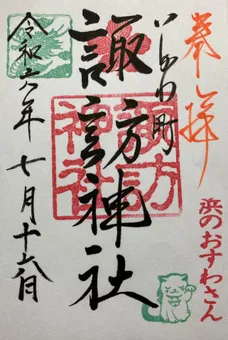 奉拝
いしゅり町
諏訪神社
諏訪
神社
令和六年 七月十六日
浜のおすわさん